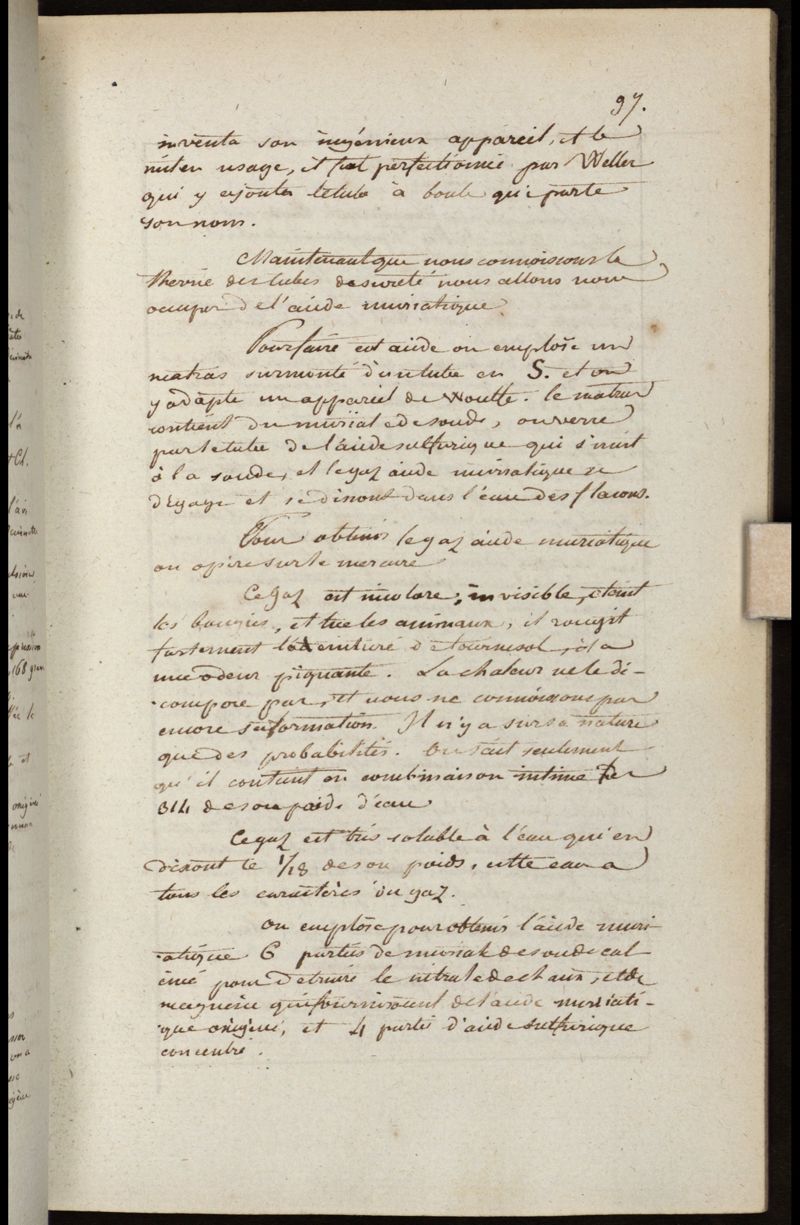 97.
inventa son ingénieux appareil, et le
mit en usage, il fut perfectionné par Weller
qui y ajouta le tube à boule qui porte
son nom.
Maintenant que nous connoissons la
theorie des tubes de sureté nous allons nous
occuper de l'acide muriatique.
Pour faire cet acide on emploie un
matras surmonté d'un tube en S. et on
y adapte un appareil de Woulfe. le matras
contient du muriate de soude, on verse
par le tube de l'acide sulfurique qui s'unit
à la soude, et le gaz acide muriatique se
dégage et se disout dans l'eau des flacons.
Pour obtenir le gaz acide muriatique
on opère sur le mercure
Ce gaz est incolore, invisible, eteint
les bougies, et tue les animaux, il rougit
fortement la teinture de tournesol, il a
une odeur piquante. La chaleur ne le dé-
compose pas, et nous ne connoissons pas
encore sa formation. Il n'y a sur sa nature
que des probabilités. On sait seulement
qu'il contient en combinaison intime les
3/4 de son poids d'eau
Ce gaz est très soluble à l'eau qui en
disout le 1/18 de son poids, cette eau a
tous les caractères du gaz.
On emploie pour obtenir l'acide muri-
atique 6 parties de muriate de soude cal-
ciné pour détruire le nitrate de chaux, et de
magnésie qui fourniroient de l'acide muriati-
que oxigéné, et 4 parties d'acide sulfurique
concentré.